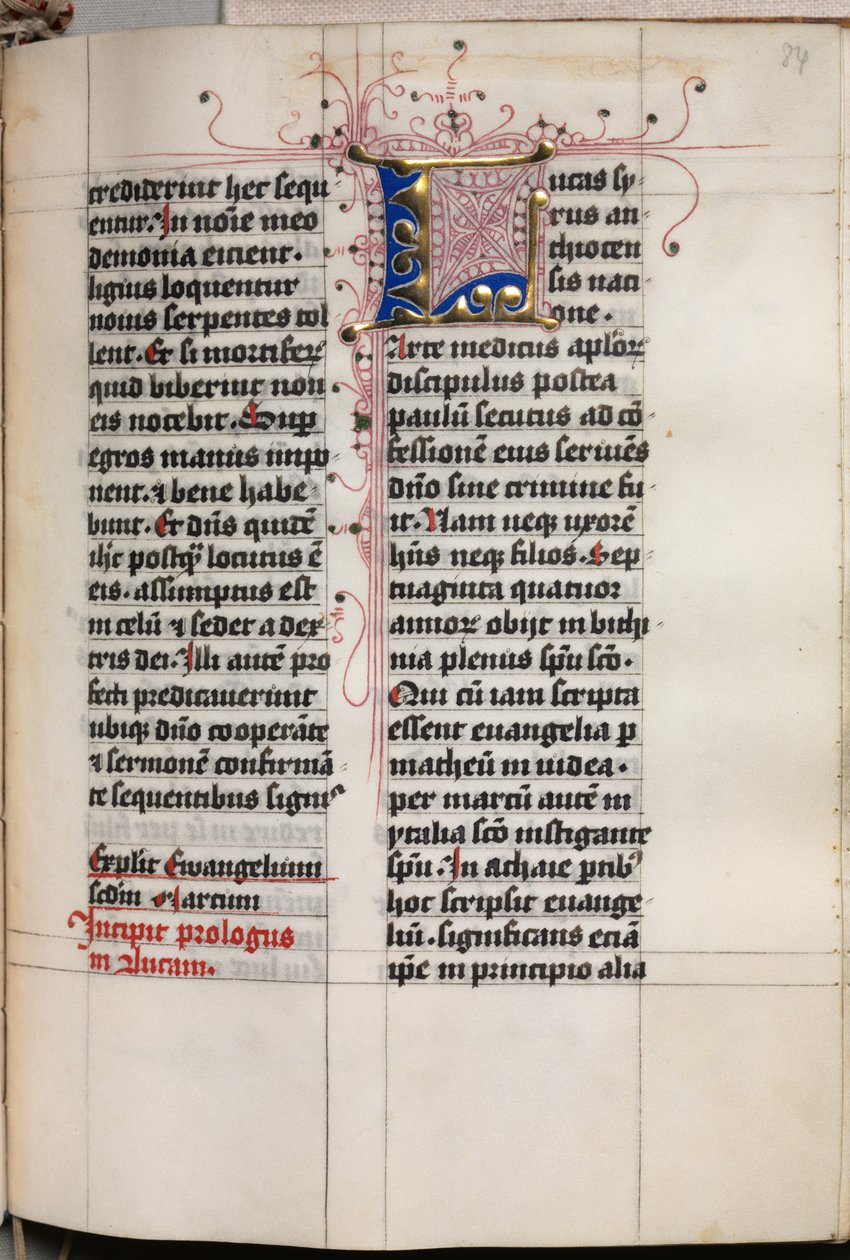 84
crediderint hec sequ
entur. In noīe meo
demonia eicient.
liguis loquentur
nouis serpentes tol
lent. Et si mortiferꝝ
quid biberint non
eis nocebit. Sup
egros manus impo
nent. ⁊ bene habe
bunt. Et dn̄s quidē
ihc postqͣ̄ locutus ē
eis. assumptus est
in celū ⁊ sedet a dex
tris dei. Illi autē pro
fecti predicauerunt
ubiqꝫ dn̄o cooperāte
⁊ sermonē confirmā
te sequentibus signis
Explit Ewangelium
scdm Marcum
Incipit prologus
in Lucam.
Lucas sy
rus an
thiocen
sis nati
one.
Arte medicus aplorꝝ
discipulus postea
paulū secutus ad cō
fessionē eius seruiēs
dn̄o sine crimine fu
it. Nam neqꝫ uxorē
hn̄s neqꝫ filios. Sep
tuaginta quatuor
annorꝝ obijt in bithi
nia plenus sp̄u scō.
Qui cū iam scripta
essent euangelia ꝑ
matheū in iudea.
per marcū autē in
ytalia scō instigante
sp̄u. In achaie ptibꝰ
hoc scripsit euange
liū. significans eciā
ip̄e in principio alia